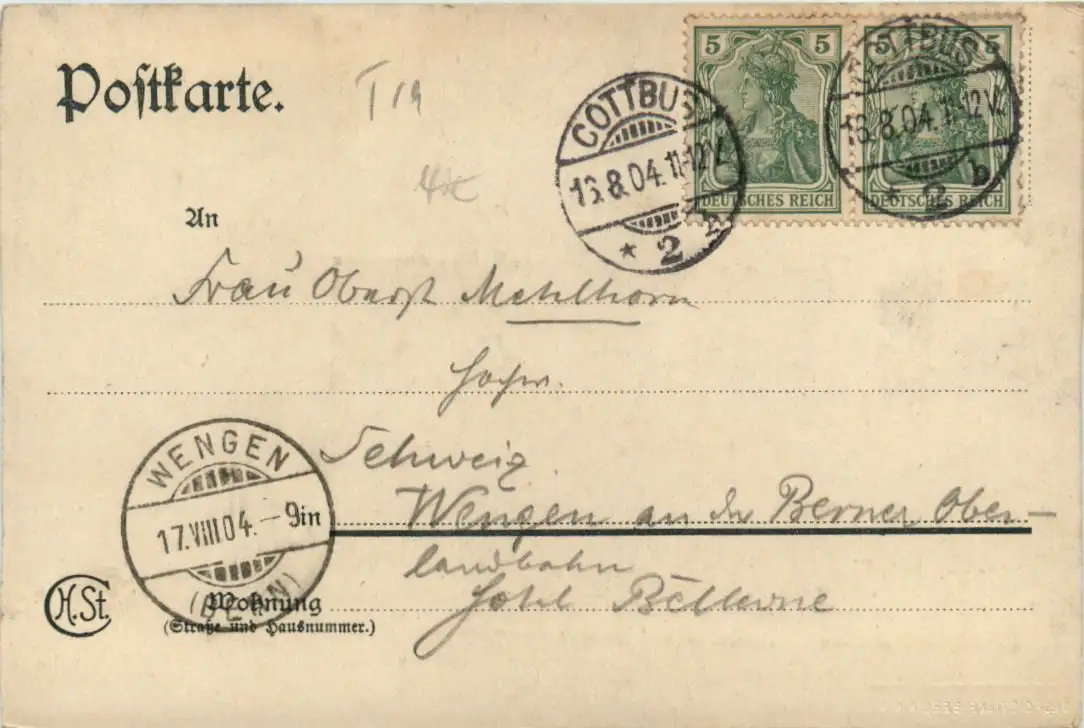 Postkarte.
T 19
COTTBUS
13.8.04. 11-12V.
* 2
5 5
DEUTSCHES REICH
COTTBUS
13.8.04. 11-12V.
* 2 b
5 5
DEUTSCHES REICH
An
Frau Oberst Mehlhorn
Schweiz.
Wengen an der Berner Ober-
landbahn
Hotel Bellevue
in
WENGEN
17.VIII.04.-9
(BERN)
H.St.
Wohnung
(Straße und Hausnummer.)